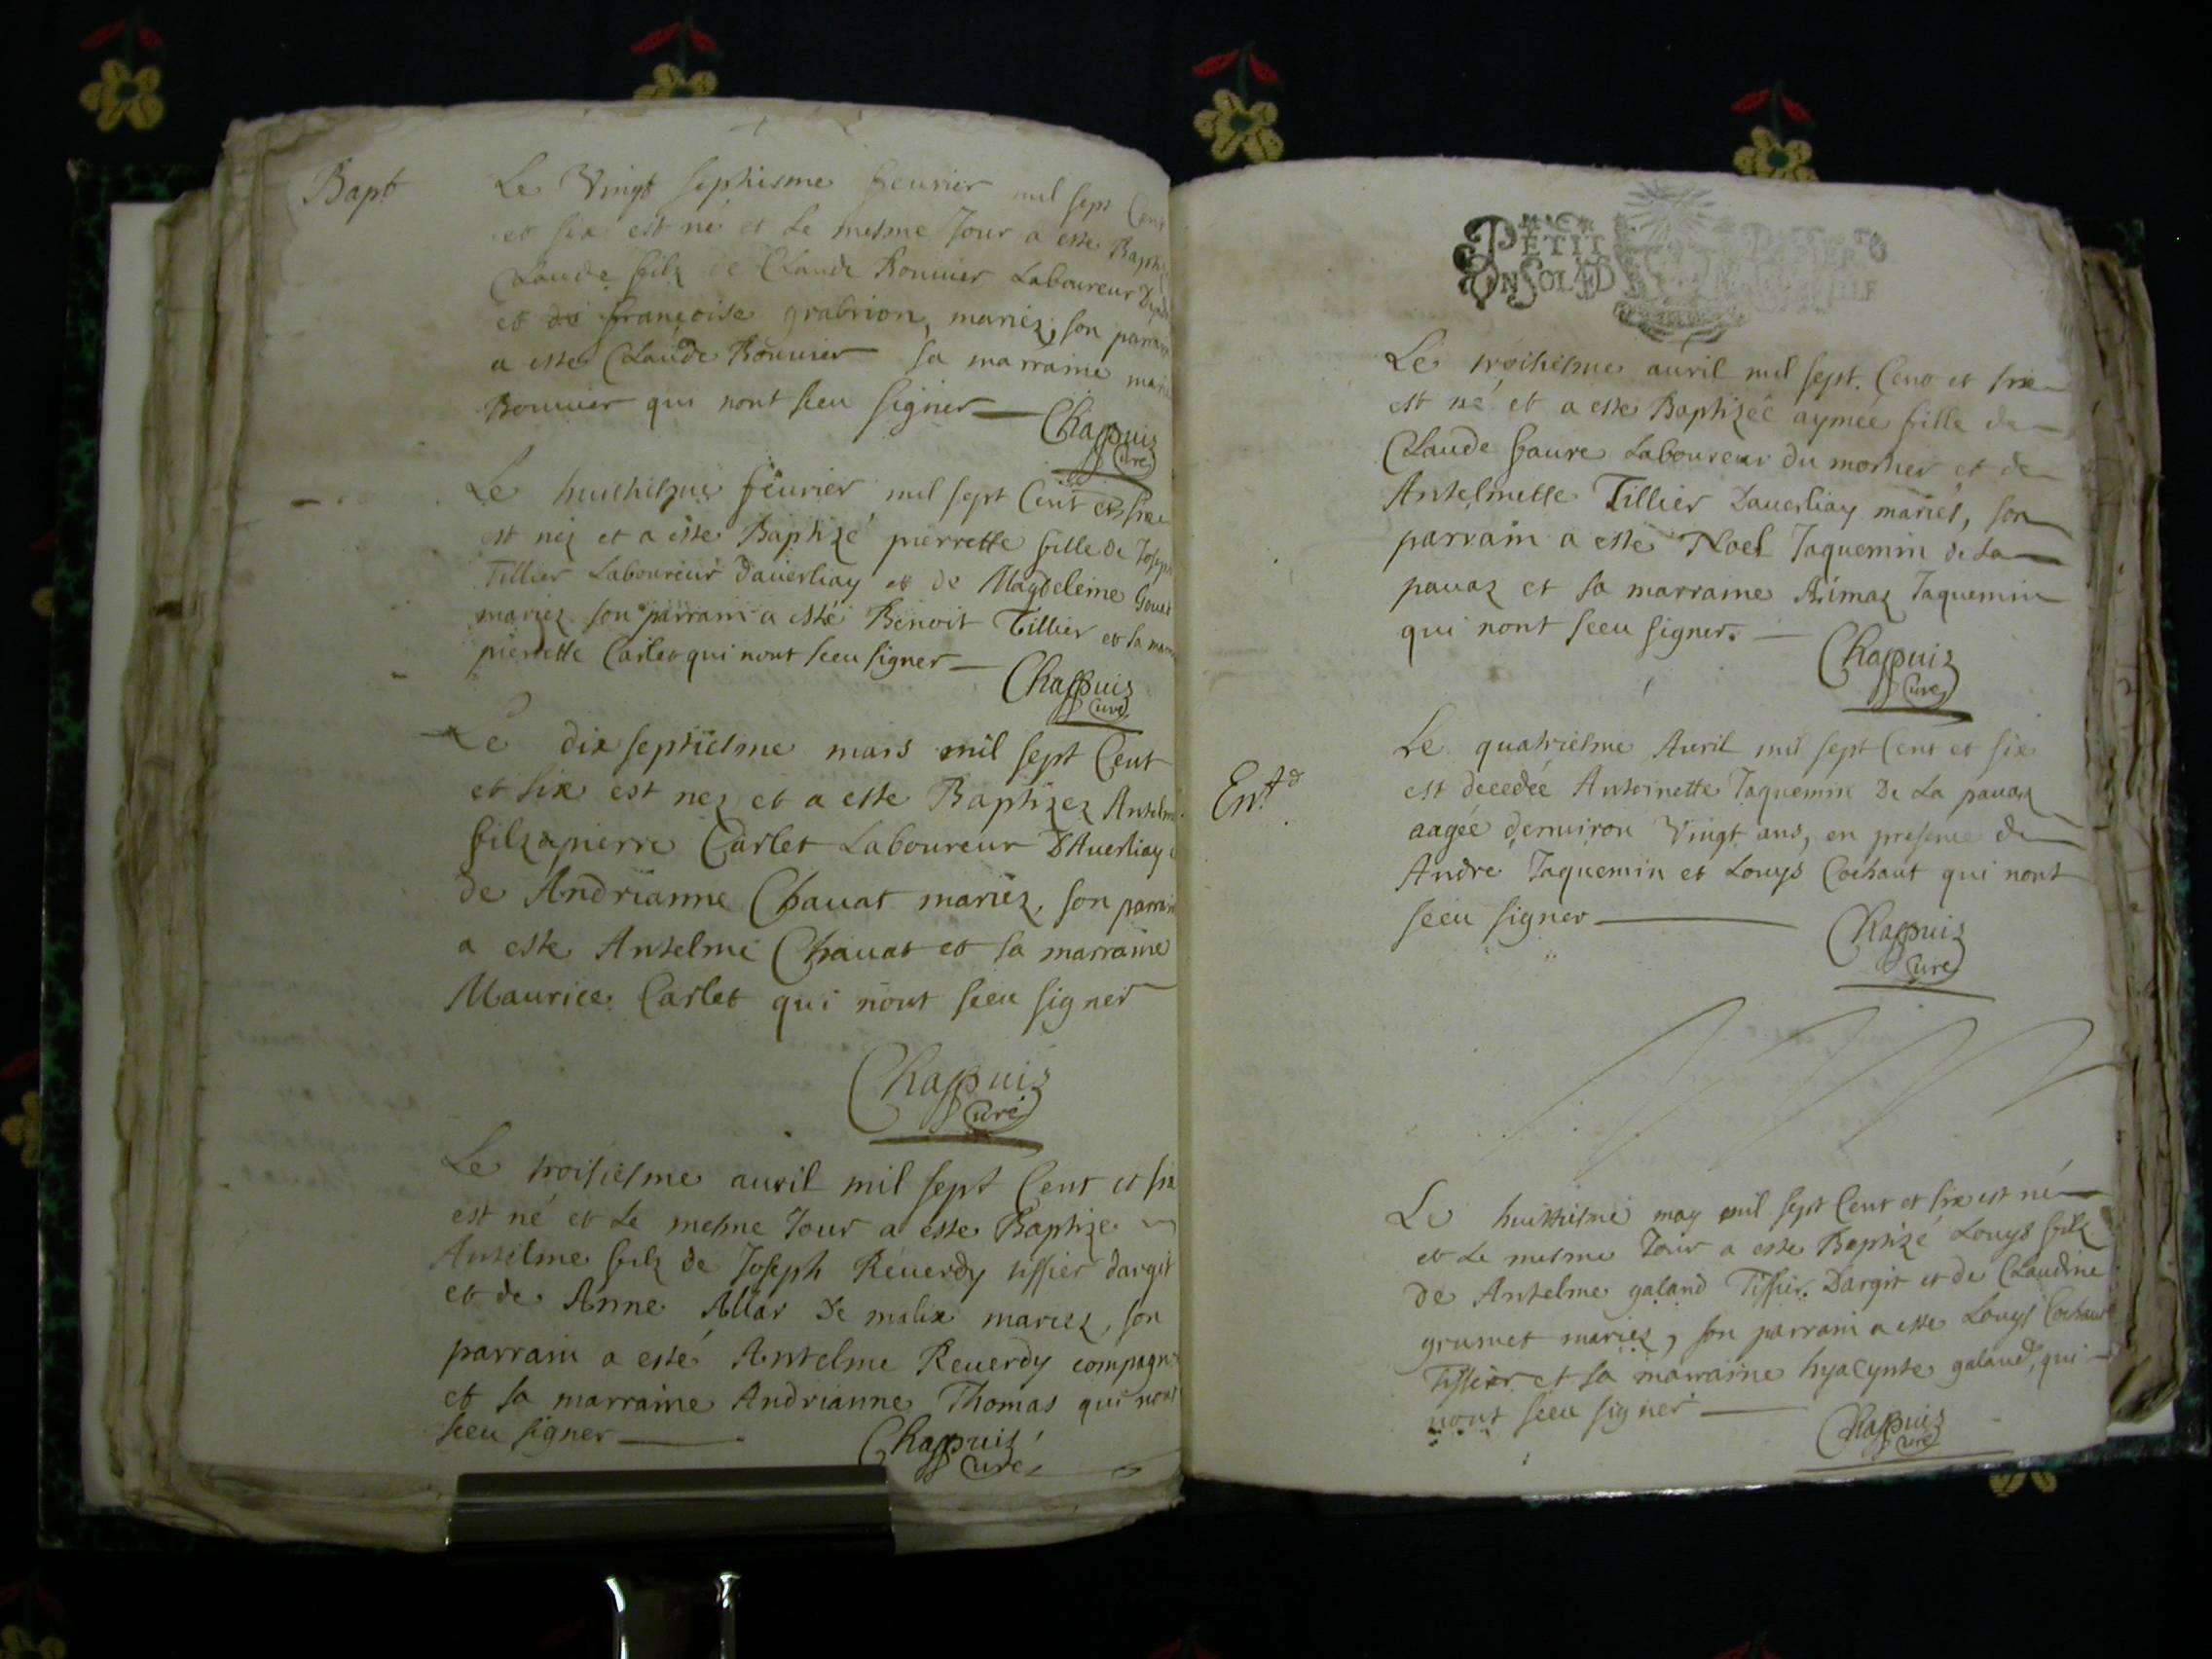 Bapt
Le Vingt septiesme feurier mil sept Cent
et six est né et Le mesme Jour a esté Baptiz
Claude filz de Claude Bouuier Laboureur
et de françoise grabrion, mariez, son parrain
a esté Claude Bouuier sa marraine marie
Bouuier qui nont sceu signer
Chappuis
Curé
Le huictiesme feurier mil sept Cent et six
est néz et a esté Baptizé pierrette fille de Joseph
Tillier Laboureur dauerliay et de Magdeleine
mariez son parrain a esté Benoit Tillier et sa
pierrette Carlet qui nont sceu signer
Chappuis
Curé
Le dix septiesme mars mil sept Cent
et six est nez et a esté Baptizez Antelm
filz a pierre Carlet Laboureur D'Auerliay
de Andrianne Chauat mariez, son parrain
a esté Antelme Chauat et sa marraine
Maurice Carlet qui nont sceu signer
Chappuis
Curé
Le troisiesme auril mil sept Cent et six
est né et Le mesme Jour a esté Baptize
Antelme filz de Joseph Reuerdy tissier dargit
et de Anne Allar De malix mariez, son
parrain a esté Antelme Reuerdy compagn
et sa marraine Andrianne Thomas qui nont
sceu signer
Chappuis
Curé
PETIT PAPIER
ON SOL 4D
Le troisiesme auril mil sept Cent et six
est né et a esté Baptizée aymée fille de
Claude faure Laboureur du mortier et de
Antelmette Tillier Dauerliay mariés, son
parrain a esté Noel Jaquemin de La
pauaz et sa marraine Aimaz Jaquemin
qui nont sceu signer.
Chappuis
Curé
Ent.
Le quatriesme Auril mil sept Cent et six
est decedée Antoinette Jaquemin De La pauaz
aagée denuiron Vingt ans, en presence de
Andre Jaquemin et Louys Cochaut qui nont
sceu signer
Chappuis
Curé
Le huittiesme may mil sept Cent et six est né
et Le mesme Jour a esté Baptizé Louys filz
de Antelme galand Tissier Dargit et de Claudine
grumet mariez, son parrain a esté Louys Cochaut
Tissier et sa marraine hyacynte galand, qui
nont sceu signer
Chappuis
Curé